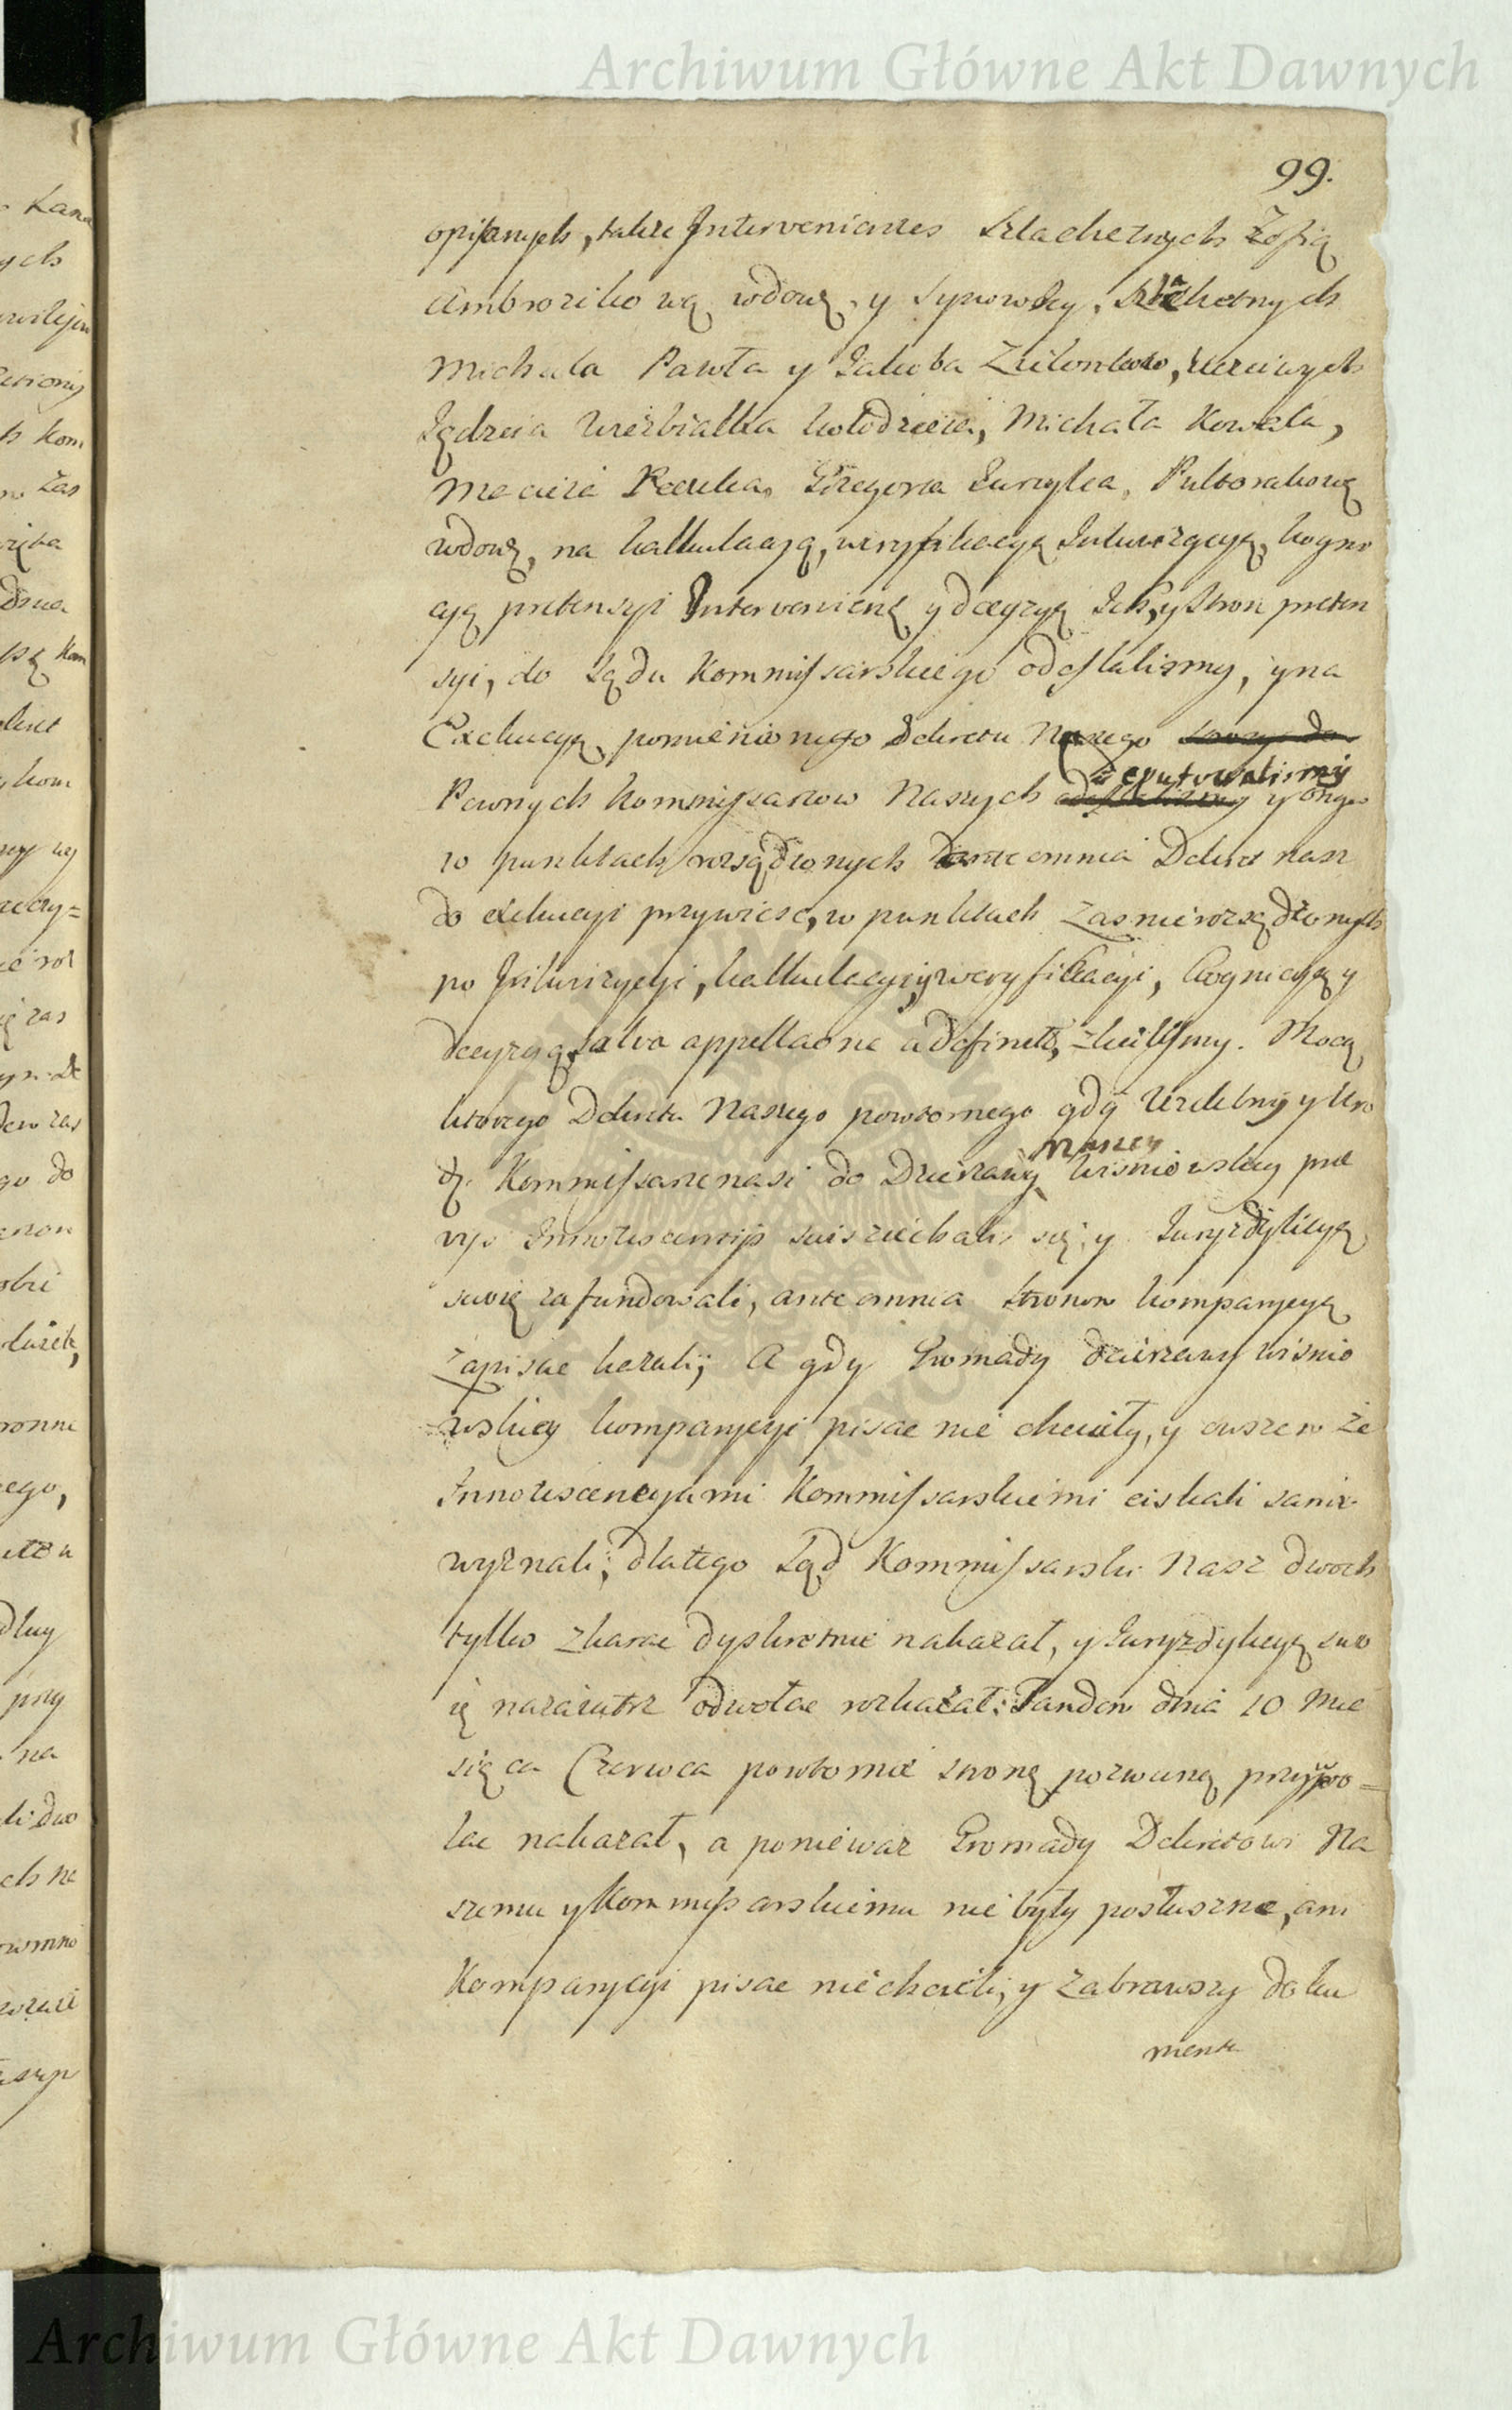 Archiwum Główne Akt Dawnych
99.
opisanych, także Interveniantes Szlachetnych Zofią
Ambrozikową wdowę, y Synowicy, Szlachetnych
Michała Pawła y Jakuba, uczciwych
Jędrzeia Wierzbialka kołodzieia, Michała Kowala,
Macieia Grzegorza Pultorakową
wdowę, na kalkulacyą, weryfikacyą Inkwizycyą, kogni
cyą pretensyi Intervenienę y decyzyą Ich, y Stron preten
syi, do Sądu Kommissarskiego odesłalismy, y na
Exekucyą pomienionego Dekretu Naszego
Pewnych Kommissarzow Naszych deputowalismy y onym
w punktach rozsądzonych ante omnia Dekret nasz
do exekucyi przywiesc, w punktach zas nierozsądzonych
po Inkwizycyi, kalkulacyi, y weryfikacyi, Kognicyą y
decyzyą, salva appellaone a definitt, zleciliśmy. Mocą
ktorego Dekretu Naszego powtornego gdy Urzędny y Uro
dz. Kommissarze nasi do Dzierzawy naszey Wisniowskiey prae
vys Innotescentiis suis ziechali się, y Juryzdykcyą
swoię zafundowali, ante omnia stronom komparycyą
zapisac kazali; A gdy Gromady dzierzawy Wisnio
wskiey komparycyi pisac nie chciały, y owszem że
Innotescencyami Kommissarskiemi ciskali sami
wyznali; dlatego Sąd Kommissarski Nasz dwoch
tylko zkarac dyskretnie nakazał, y Juryzdykcyą swo
ię nazaiutrz odwołac rozkazał: Tandem dnia 10 Mie
siąca Czerwca powtornie stronę pozwaną przywo=
łac nakazał, a poniewaz Gromady Dekretowi Na
szemu y Kommissarskiemu nie były posłuszne, ani
Komparycyi pisac niechcieli, y zabrawszy doku
menta
Archiwum Główne Akt Dawnych